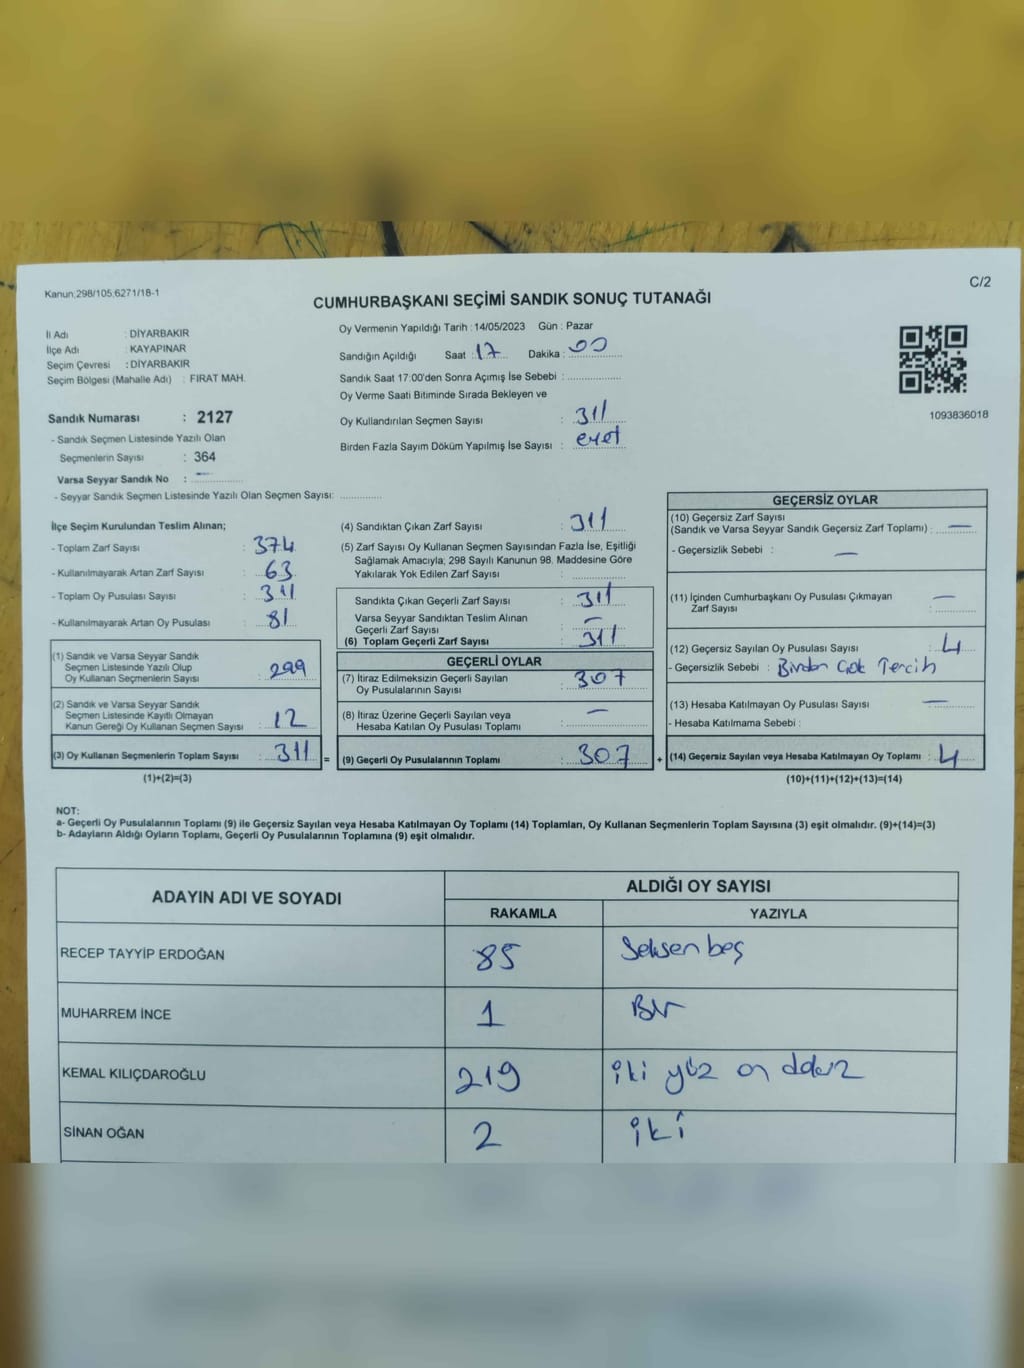 Kanun;298/105,6271/18-1
C/2
CUMHURBAŞKANI SEÇİMİ SANDIK SONUÇ TUTANAĞI
İl Adı : DİYARBAKIR
İlçe Adı : KAYAPINAR
Seçim Çevresi : DİYARBAKIR
Seçim Bölgesi (Mahalle Adı) : FIRAT MAH.
Oy Vermenin Yapıldığı Tarih : 14/05/2023 Gün : Pazar
Sandığın Açıldığı Saat : 17 Dakika : 00
Sandık Saat 17:00'den Sonra Açımış İse Sebebi :
Oy Verme Saati Bitiminde Sırada Bekleyen ve
Oy Kullandırılan Seçmen Sayısı : 311
Birden Fazla Sayım Döküm Yapılmış İse Sayısı : evet
1093836018
Sandık Numarası : 2127
- Sandık Seçmen Listesinde Yazılı Olan
Seçmenlerin Sayısı : 364
Varsa Seyyar Sandık No : —
- Seyyar Sandık Seçmen Listesinde Yazılı Olan Seçmen Sayısı:
İlçe Seçim Kurulundan Teslim Alınan;
- Toplam Zarf Sayısı : 374
- Kullanılmayarak Artan Zarf Sayısı : 63
- Toplam Oy Pusulası Sayısı :
- Kullanılmayarak Artan Oy Pusulası : 81
(1) Sandık ve Varsa Seyyar Sandık
Seçmen Listesinde Yazılı Olup
Oy Kullanan Seçmenlerin Sayısı : 299
(2) Sandık ve Varsa Seyyar Sandık
Seçmen Listesinde Kayıtlı Olmayan
Kanun Gereği Oy Kullanan Seçmen Sayısı : 12
(3) Oy Kullanan Seçmenlerin Toplam Sayısı : 311 =
(1)+(2)=(3)
(4) Sandıktan Çıkan Zarf Sayısı : 311
(5) Zarf Sayısı Oy Kullanan Seçmen Sayısından Fazla İse, Eşitliği
Sağlamak Amacıyla; 298 Sayılı Kanunun 98. Maddesine Göre
Yakılarak Yok Edilen Zarf Sayısı :
Sandıkta Çıkan Geçerli Zarf Sayısı : 311
Varsa Seyyar Sandıktan Teslim Alınan
Geçerli Zarf Sayısı : —
(6) Toplam Geçerli Zarf Sayısı : 311
GEÇERLİ OYLAR
(7) İtiraz Edilmeksizin Geçerli Sayılan
Oy Pusulalarının Sayısı : 307
(8) İtiraz Üzerine Geçerli Sayılan veya
Hesaba Katılan Oy Pusulası Toplamı : —
(9) Geçerli Oy Pusulalarının Toplamı : 307 +
GEÇERSİZ OYLAR
(10) Geçersiz Zarf Sayısı
(Sandık ve Varsa Seyyar Sandık Geçersiz Zarf Toplamı) : —
- Geçersizlik Sebebi : —
(11) İçinden Cumhurbaşkanı Oy Pusulası Çıkmayan
Zarf Sayısı : —
(12) Geçersiz Sayılan Oy Pusulası Sayısı : 4
- Geçersizlik Sebebi : Birden Çok Tercih
(13) Hesaba Katılmayan Oy Pusulası Sayısı : —
- Hesaba Katılmama Sebebi :
(14) Geçersiz Sayılan veya Hesaba Katılmayan Oy Toplamı : 4
(10)+(11)+(12)+(13)=(14)
NOT:
a- Geçerli Oy Pusulalarının Toplamı (9) ile Geçersiz Sayılan veya Hesaba Katılmayan Oy Toplamı (14) Toplamları, Oy Kullanan Seçmenlerin Toplam Sayısına (3) eşit olmalıdır. (9)+(14)=(3)
b- Adayların Aldığı Oyların Toplamı, Geçerli Oy Pusulalarının Toplamına (9) eşit olmalıdır.
ADAYIN ADI VE SOYADI
ALDIĞI OY SAYISI
RAKAMLA YAZIYLA
RECEP TAYYİP ERDOĞAN 85 Seksen beş
MUHARREM İNCE 1 Bir
KEMAL KILIÇDAROĞLU 219 iki yüz on
SİNAN OĞAN 2 iki